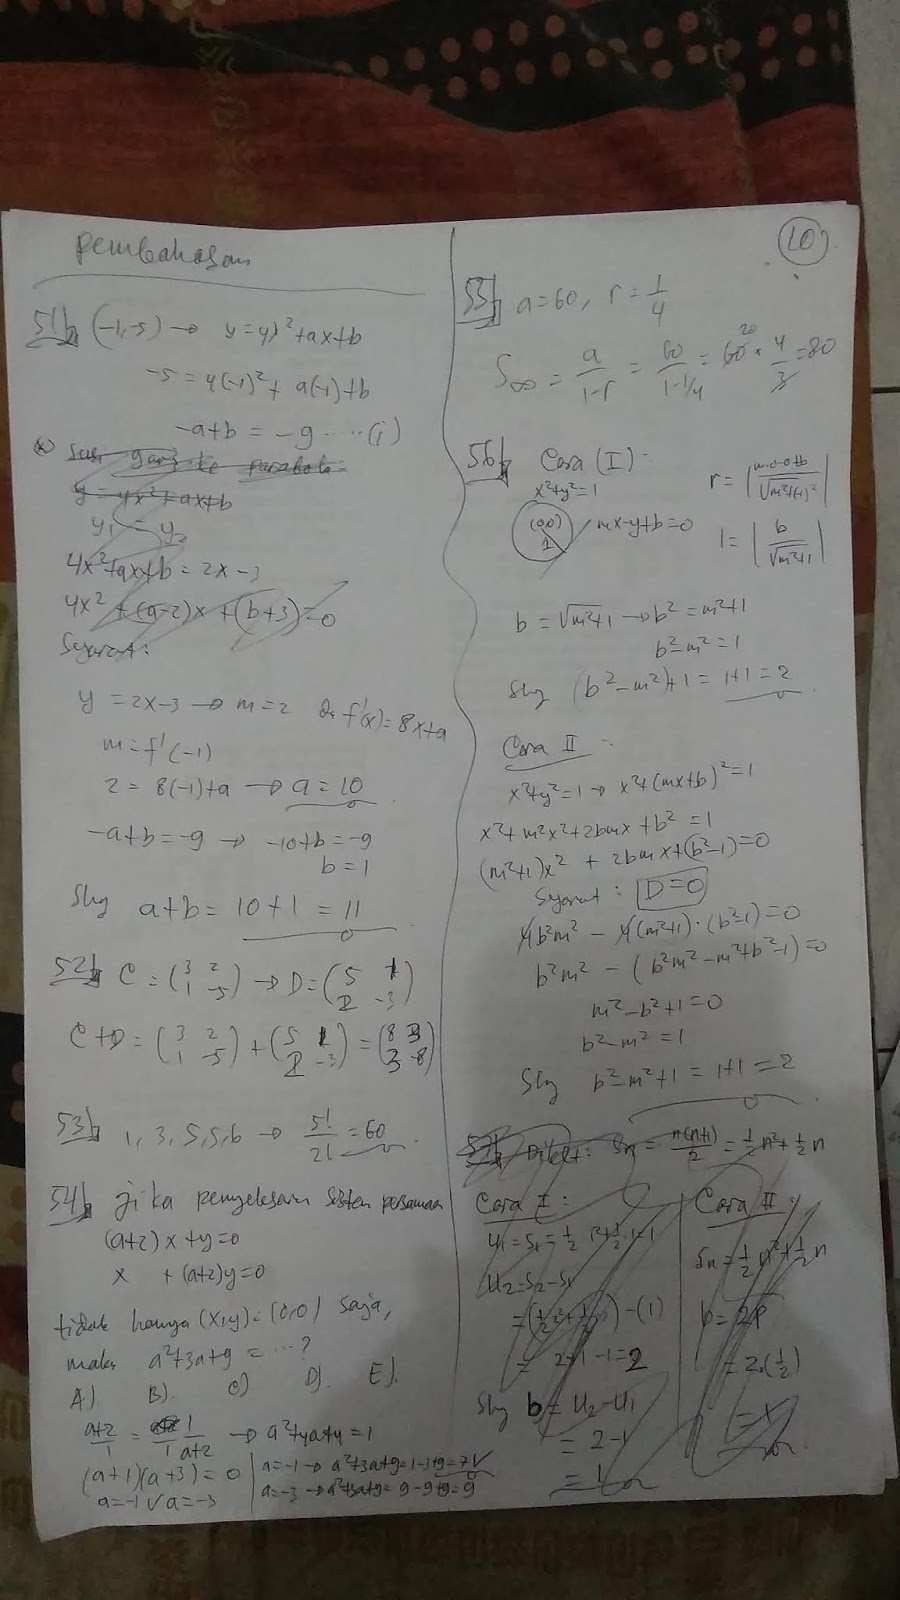 Pembahasan
51). (-1,-5) → y=4x²+ax+b
-5=4(-1)²+a(-1)+b
-a+b = -9 ....(i)
y = 4x²+ax+b
y₁ = y₂
4x²+ax+b = 2x-3
4x² + (a-2)x + (b+3) = 0
Syarat:
y = 2x-3 → m=2 & f'(x)=8x+a
m=f'(-1)
2 = 8(-1)+a → a=10
-a+b=-9 → -10+b=-9
b=1
Shg a+b = 10+1 = 11
52). C = (3 2
1 -5) → D = (5 1
2 -3)
C+D = (3 2
1 -5) + (5 1
2 -3) = (8 3
3 -8)
53). 1, 3, 5, 5, 6 → 5!/2! = 60
54). Jika penyelesaian sistem persamaan
(a+2)x+y=0
x + (a+2)y=0
tidak hanya (x,y)=(0,0) saja,
maka a²+3a+9 = ...?
A). B). C) D). E).
a+2/1 = 1/a+2 → a²+4a+4=1
(a+1)(a+3) = 0
a=-1 ∨ a=-3
a=-1 → a²+3a+9=1-3+9=7 √
a=-3 → a²+3a+9= 9-9+9=9
10).
55). a=60, r=1/4
S∞ = a/1-r = 60/1-1/4 = 60 20 × 4/3 = 80
56). Cara (I):
x²+y²=1
(0,0)
1
mx-y+b=0
r = |m.0-0+b/√m²+(-1)²|
1 = |b/√m²+1|
b = √m²+1 → b² = m²+1
b²-m²=1
Shg (b²-m²)+1 = 1+1 = 2
Cara II:
x²+y²=1 → x²+(mx+b)²=1
x²+m²x²+2bmx+b² = 1
(m²+1)x² + 2bmx+(b²-1)=0
Syarat: D=0
4b²m² - 4(m²+1)·(b²-1)=0
b²m² - (b²m²-m²+b²-1)=0
m²-b²+1=0
b²-m²=1
Shg b²-m²+1 = 1+1 = 2
57). Diket: Sn = n(n+1)/2 = 1/2n²+1/2n
Cara I:
U₁=S₁=1/2.1²+1/2.1=1
U₂=S₂-S₁
= 2+1-1=2
Shg b = U₂-U₁
= 2-1
= 1
Cara II:
Sn=1/2n²+1/2n
b=2P
=2.(1/2)
=1